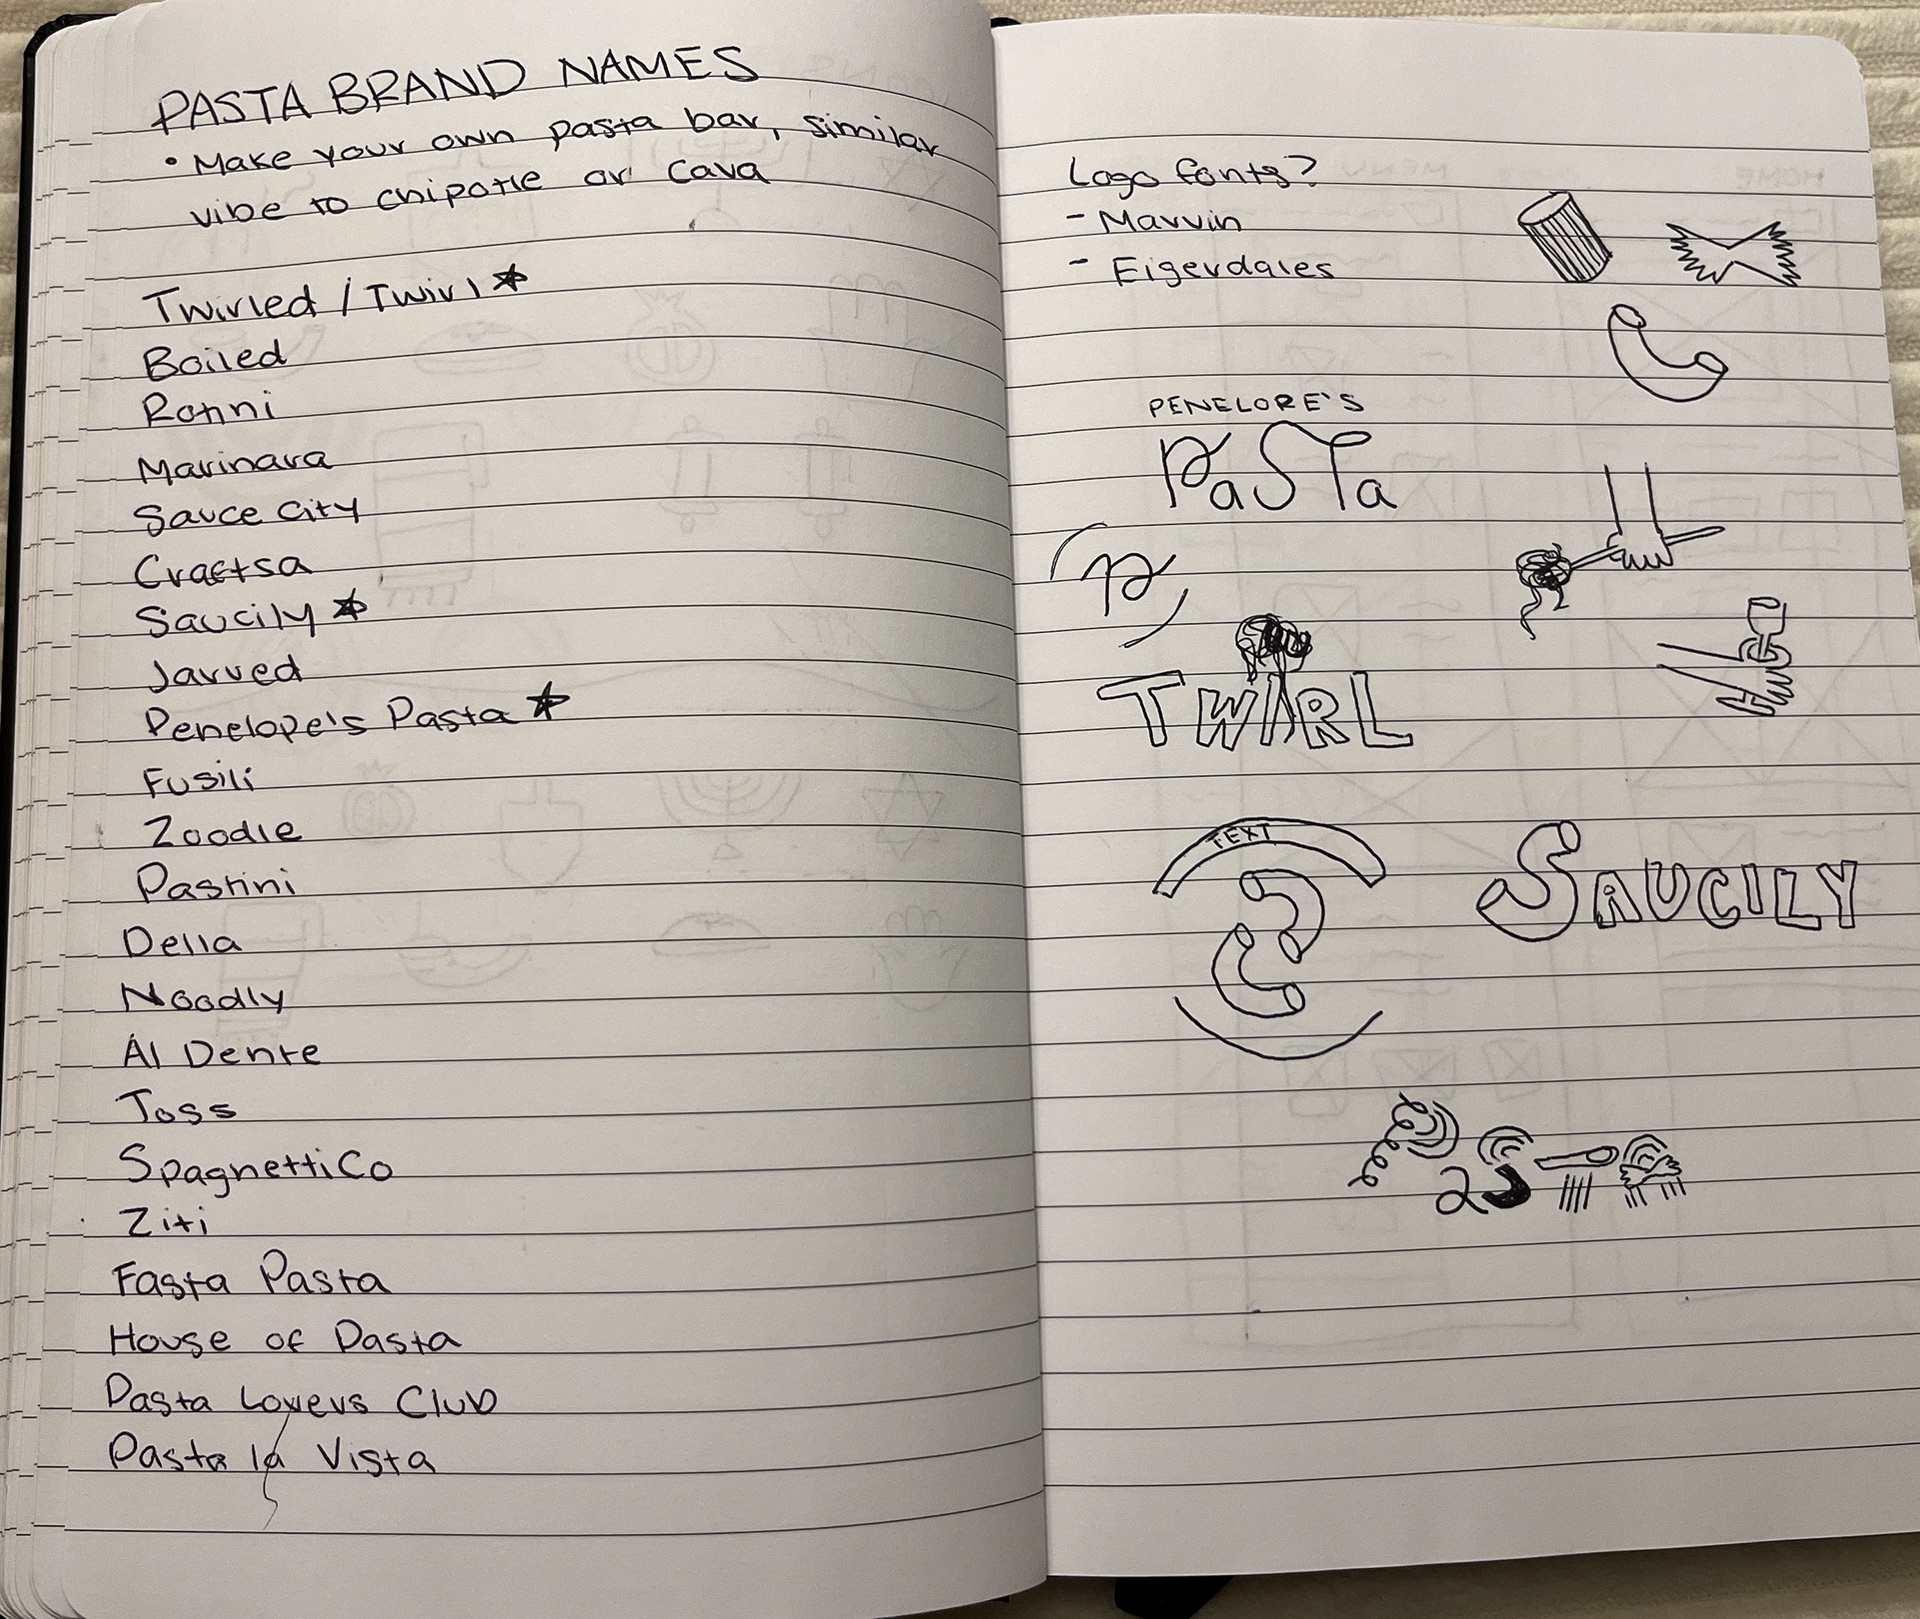 PASTA BRAND NAMES
• Make your own pasta bar, similar
vibe to chipotle or Cava
Twirled / Twirl ★
Boiled
Ronni
Marinara
Sauce City
Saucily ★
Jarred
Penelope's Pasta ★
Fusili
Zoodle
Pastini
Della
Noodly
Al Dente
Toss
Spaghetti Co
Ziti
Fasta Pasta
House of Pasta
Pasta Lovers Club
Pasta la Vista
Logo fonts?
- Marvin
- Eigerdales
PENELOPE'S
PaSTa
P
TWIRL
TEXT
SAUCILY
PaSTa